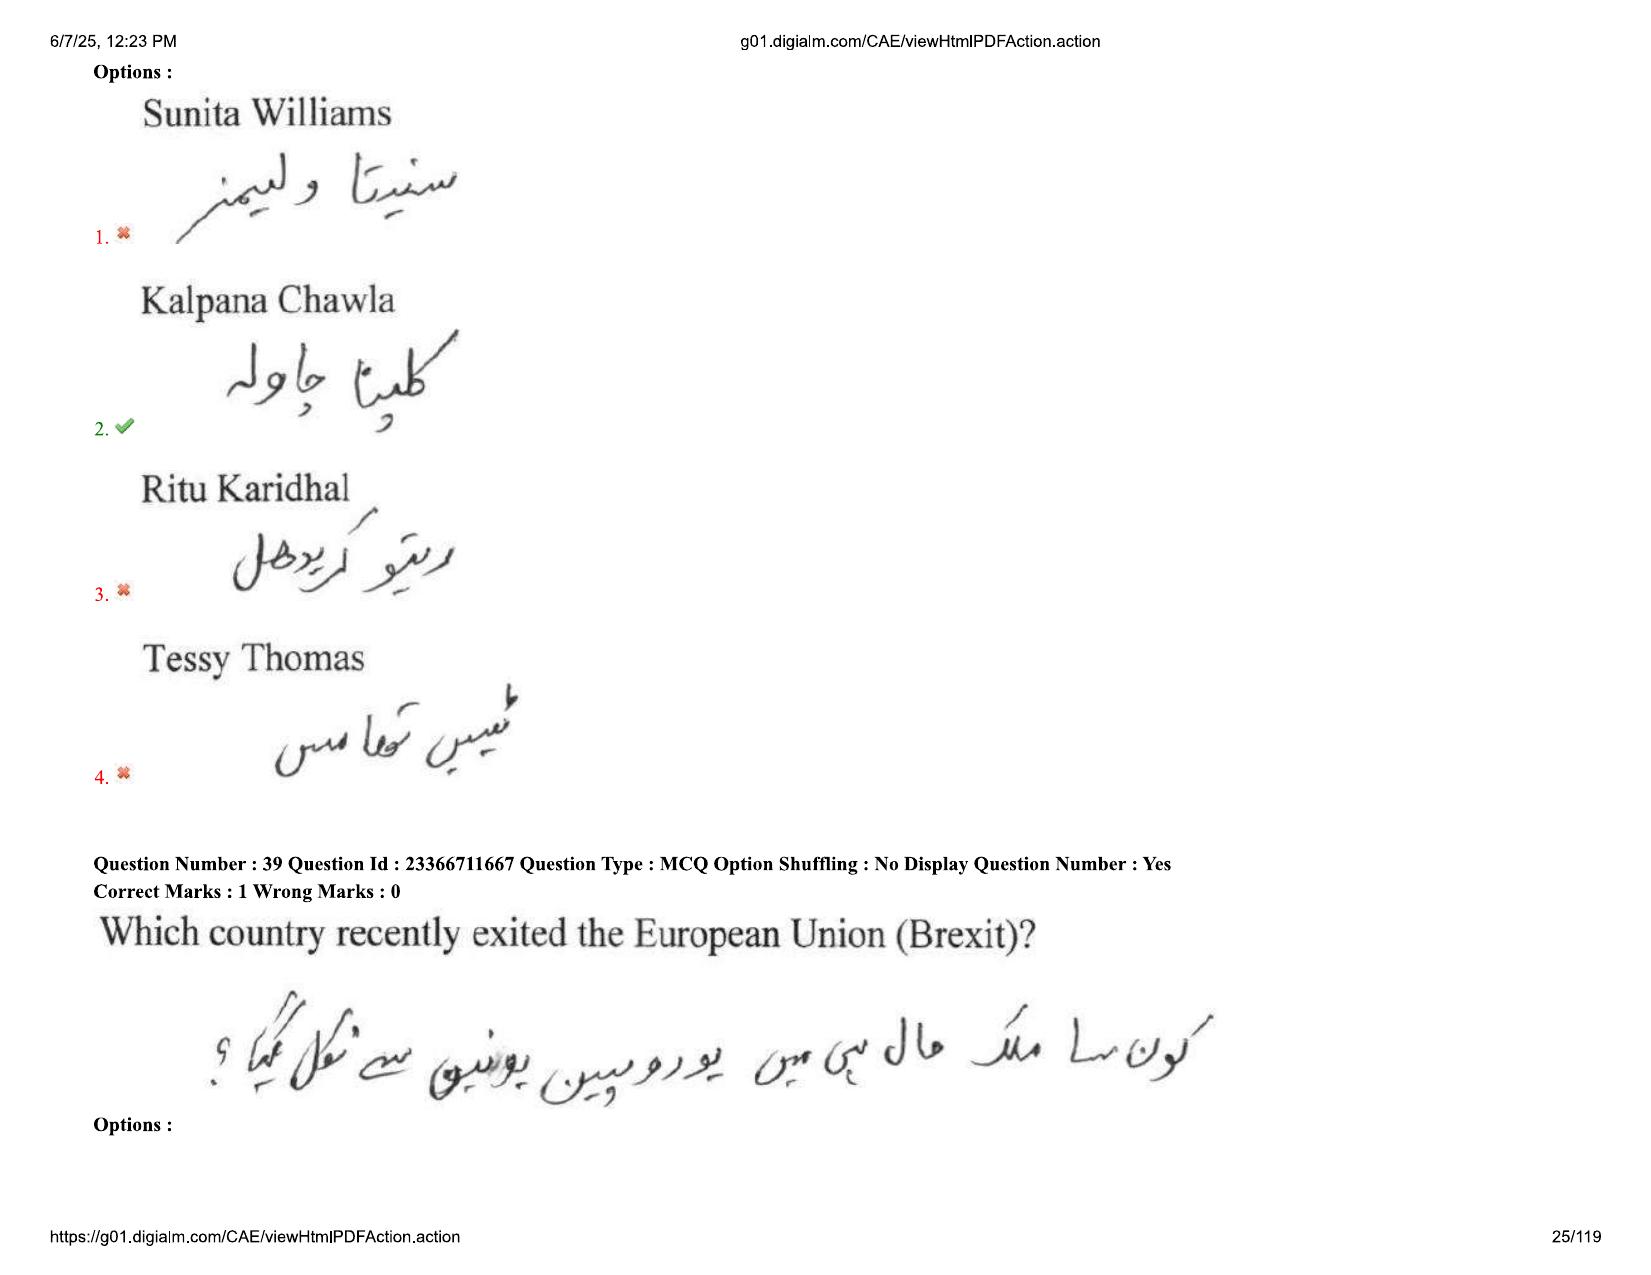 6/7/25, 12:23 PM
g01.digialm.com/CAE/viewHtmlPDFAction.action
Options :
Sunita Williams
سنیتا ولیمز
1.
Kalpana Chawla
کلپنا چاولہ
2.
Ritu Karidhal
ریتو کریدھل
3.
Tessy Thomas
ٹیسی تھامس
4.
Question Number : 39 Question Id : 23366711667 Question Type : MCQ Option Shuffling : No Display Question Number : Yes
Correct Marks : 1 Wrong Marks : 0
Which country recently exited the European Union (Brexit)?
کون سا ملک حال ہی میں یوروپین یونین سے نکل گیا ؟
Options :
https://g01.digialm.com/CAE/viewHtmlPDFAction.action
25/119